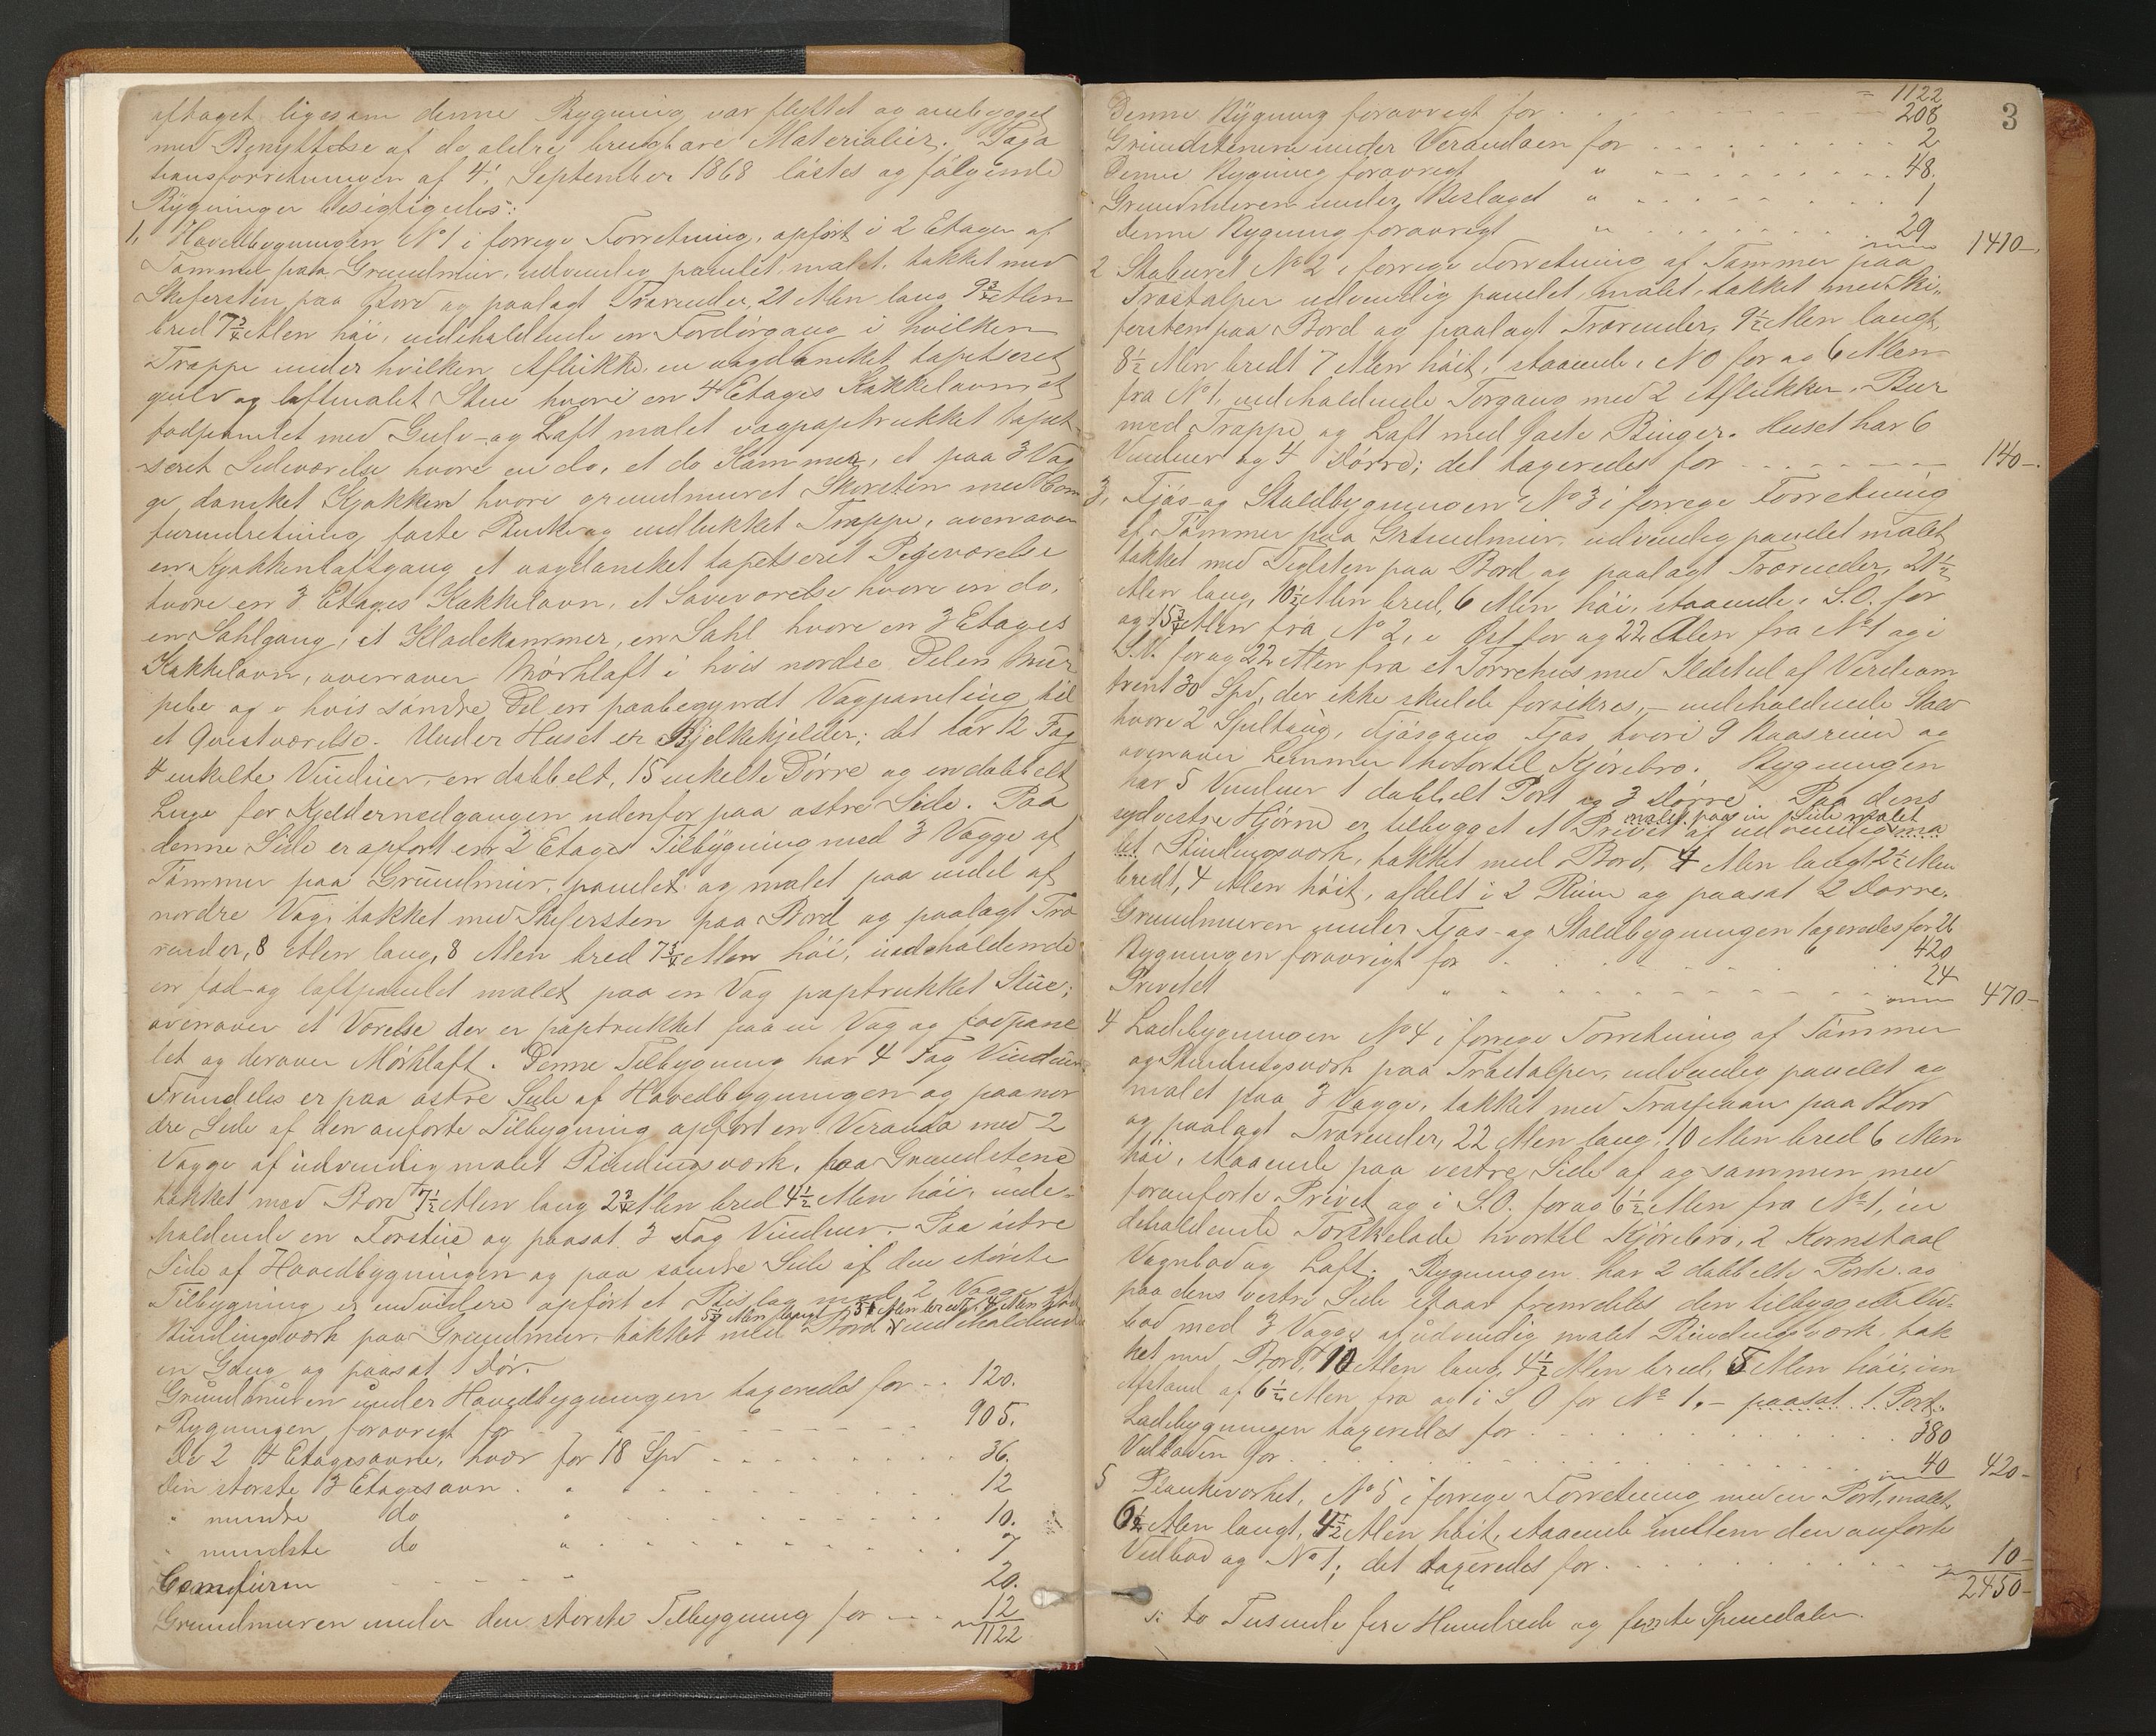 aftaget ligesom denne Bygning var flyttet og ombygget
med Benyttelse af de ældre brugbare Materialier. Taxa
tionsforretningen af 4. September 1868 læstes og følgende
Bygninger besigtigedes:
1, Hovedbygningen No 1 i forrige Forretning, opført i 2 Etager af
Tømmer paa Grundmur, udvendig panelet, malet, takket med
Skifersten paa Bord og paalagt Trærender, 21 Alen lang 9 3/4 Alen
bred 7 3/4 Alen høi, indeholdende en Fordørgang i hvilken
Trappe under hvilken Aflukke, en vægdansket tapetseret
gulv og loftmalet Stue hvori en 4 Etages Kakkelovn, et
fodpanelet med Gulv- og Loft malet vægpaptrukket tapet-
seret Sideværelse hvori en do, et do Kammer, et paa 3 Væg
ge dansket Kjøkken hvori grundmuret Skorsten med Com
furindretning faste Bænke og indlukket Trappe, ovenover
en Kjøkkenloftgang et vægdansket tapetseret Pigeværelse
hvori en 3 Etages Kakkelovn, et Soveværelse hvori en do,
en Sahlgang, et Klædekammer, en Sahl hvori en 3 Etages
Kakkelovn, ovenover Mørkloft i hvis nordre Del en Mur
pibe og i hvis søndre Del en paabegyndt Vægpaneling til
et Qvistværelse. Under Huset er Bjelkekjelder; det har 12 Fag
4 enkelte Vinduer, en dobbelt, 15 enkelte Dørre og en dobbelt
Luge for Kjeldernedgangen udenfor paa østre Side. Paa
denne Side er opført en 2 Etages Tilbygning med 3 Vægge af
Tømmer paa Grundmur, panelet og malet paa endel af
nordre Væg, takket med Skifersten paa Bord og paalagt Træ
render, 8 Alen lang, 8 Alen bred 7 3/4 Alen høi, indeholdende
en fod- og loftpanelet malet paa en Væg paptrukket Stue;
ovenover et Værelse der er paptrukket paa en Væg og fodpane
let og derover Mørkloft. Denne Tilbygning har 4 Fag Vinduer.
Fremdeles er paa østre Side af Hovedbygningen og paa nor
dre Side af den anførte Tilbygning opført en Veranda med 2
Vægge af udvendig malet Bindingsværk, paa Grundstene
takket med Bord 7 1/2 Alen lang 2 3/4 Alen bred 4 1/2 Alen høi, inde-
holdende en Forstue og paasat 3 Fag Vinduer. Paa østre
Side af Hovedbygningen og paa søndre Side af den største
Tilbygning er endvidere opført et Bislag med 2 Vægge af
Bindingsværk paa Grundmur, takket med Bord indeholdende
en Gang og paasat 1 Dør.
Grundmuren under Hovedbygningen taxeredes for . . 120.
Bygningen forøvrigt for 905.
De 2 4 Etagesovne, hver for 18 Spd 36.
Den største 3 Etagesovn . " 12
" mindre do " 10.
" mindste do " 7
Comfuren 20.
Grundmuren under den største Tilbygning for 12
1122
3
= 1122
Denne Bygning forøvrigt for 208
Grundstenene under Verandaen for 2
Denne Bygning forøvrigt " 48.
Grundmuren under Bislaget " 1
Denne Bygning forøvrigt " 29 1410-.
2 Staburet No 2 i forrige Forretning af Tømmer paa
Træstolper udvendig panelet, malet, takket med Ski-
fersten paa Bord og paalagt Trærender, 9 1/2 Alen langt,
8 1/2 Alen bredt 7 Alen høit, staaende i N O for og 6 Alen
fra No 1, indeholdende Forgang med 2 Aflukker, Bur
med Trappe og Loft med faste Binger. Huset har 6
Vinduer og 4 Dørre; det taxeredes for 140-.
3, Fjøs- og Staldbygningen No 3 i forrige Forretning
af Tømmer paa Grundmur, udvendig panelet malet
takket med Teglsten paa Bord og paalagt Trærender, 21 1/2
Alen lang, 10 1/2 Alen bred, 6 Alen høi, staaende i S.O. for
og 15 3/4 Alen fra No 2, i Øst for og 22 Alen fra No 1 og i
S.V. for og 22 Alen fra et Tørrehus med Ildsted af Værdi om
trent 30 Spd, der ikke skulde forsikres, - indeholdende Stald
hvori 2 Spiltaug, Fjøsgang, Fjøs hvori 9 Baasrum og
ovenover Lemmer hvortil Kjørebro. Bygningen
har 5 Vinduer 1 dobbelt Port og 3 Dørre. Paa dens
sydvestre Hjørne er tilbygget et Privet af udvendig ma
malet paa en Side malet
let Bindingsværk, takket med Bord, 4 Alen langt 2 1/2 Alen
bredt, 4 Alen høit, afdelt i 2 Rum og paasat 2 Dørre.
Grundmuren under Fjøs- og Staldbygningen taxeredes for 26
Bygningen forøvrigt for 420
Privetet " 24 470-
4 Ladebygningen No 4 i forrige Forretning af Tømmer
og Bindingsværk paa Træstolper, udvendig panelet og
malet paa 3 Vægge, takket med Træspaan paa Bord
og paalagt Trærender, 22 Alen lang, 10 Alen bred 6 Alen
høi, staaende paa vestre Side af og sammen med
foranførte Privet og i S.O. for og 6 1/2 Alen fra No 1, in
deholdende Tærskelade hvortil Kjørebro, 2 Kornstaal
Vognbod og Loft. Bygningen har 2 dobbelte Porte og
paa dens vestre Side staar fremdeles den tilbyggede Ved-
bod med 3 Vægge af udvendig malet Bindingsværk, tak
ket med Bord, 10 Alen lang, 4 1/2 Alen bred, 5 Alen høi, i en
Afstand af 6 1/2 Alen fra og i S O for No 1. - paasat 1 Port.
Ladebygningen taxeredes for 380
Vedboden for 40 420-
5 Plankeværket, No 5 i forrige Forretning med en Port, malet,
6 1/2 Alen langt, 4 1/2 Alen høit, staaende mellem den anførte
Vedbod og No 1; det taxeredes for 10-
2450-
s: to Tusende fire Hundrede og femti Speciedaler.